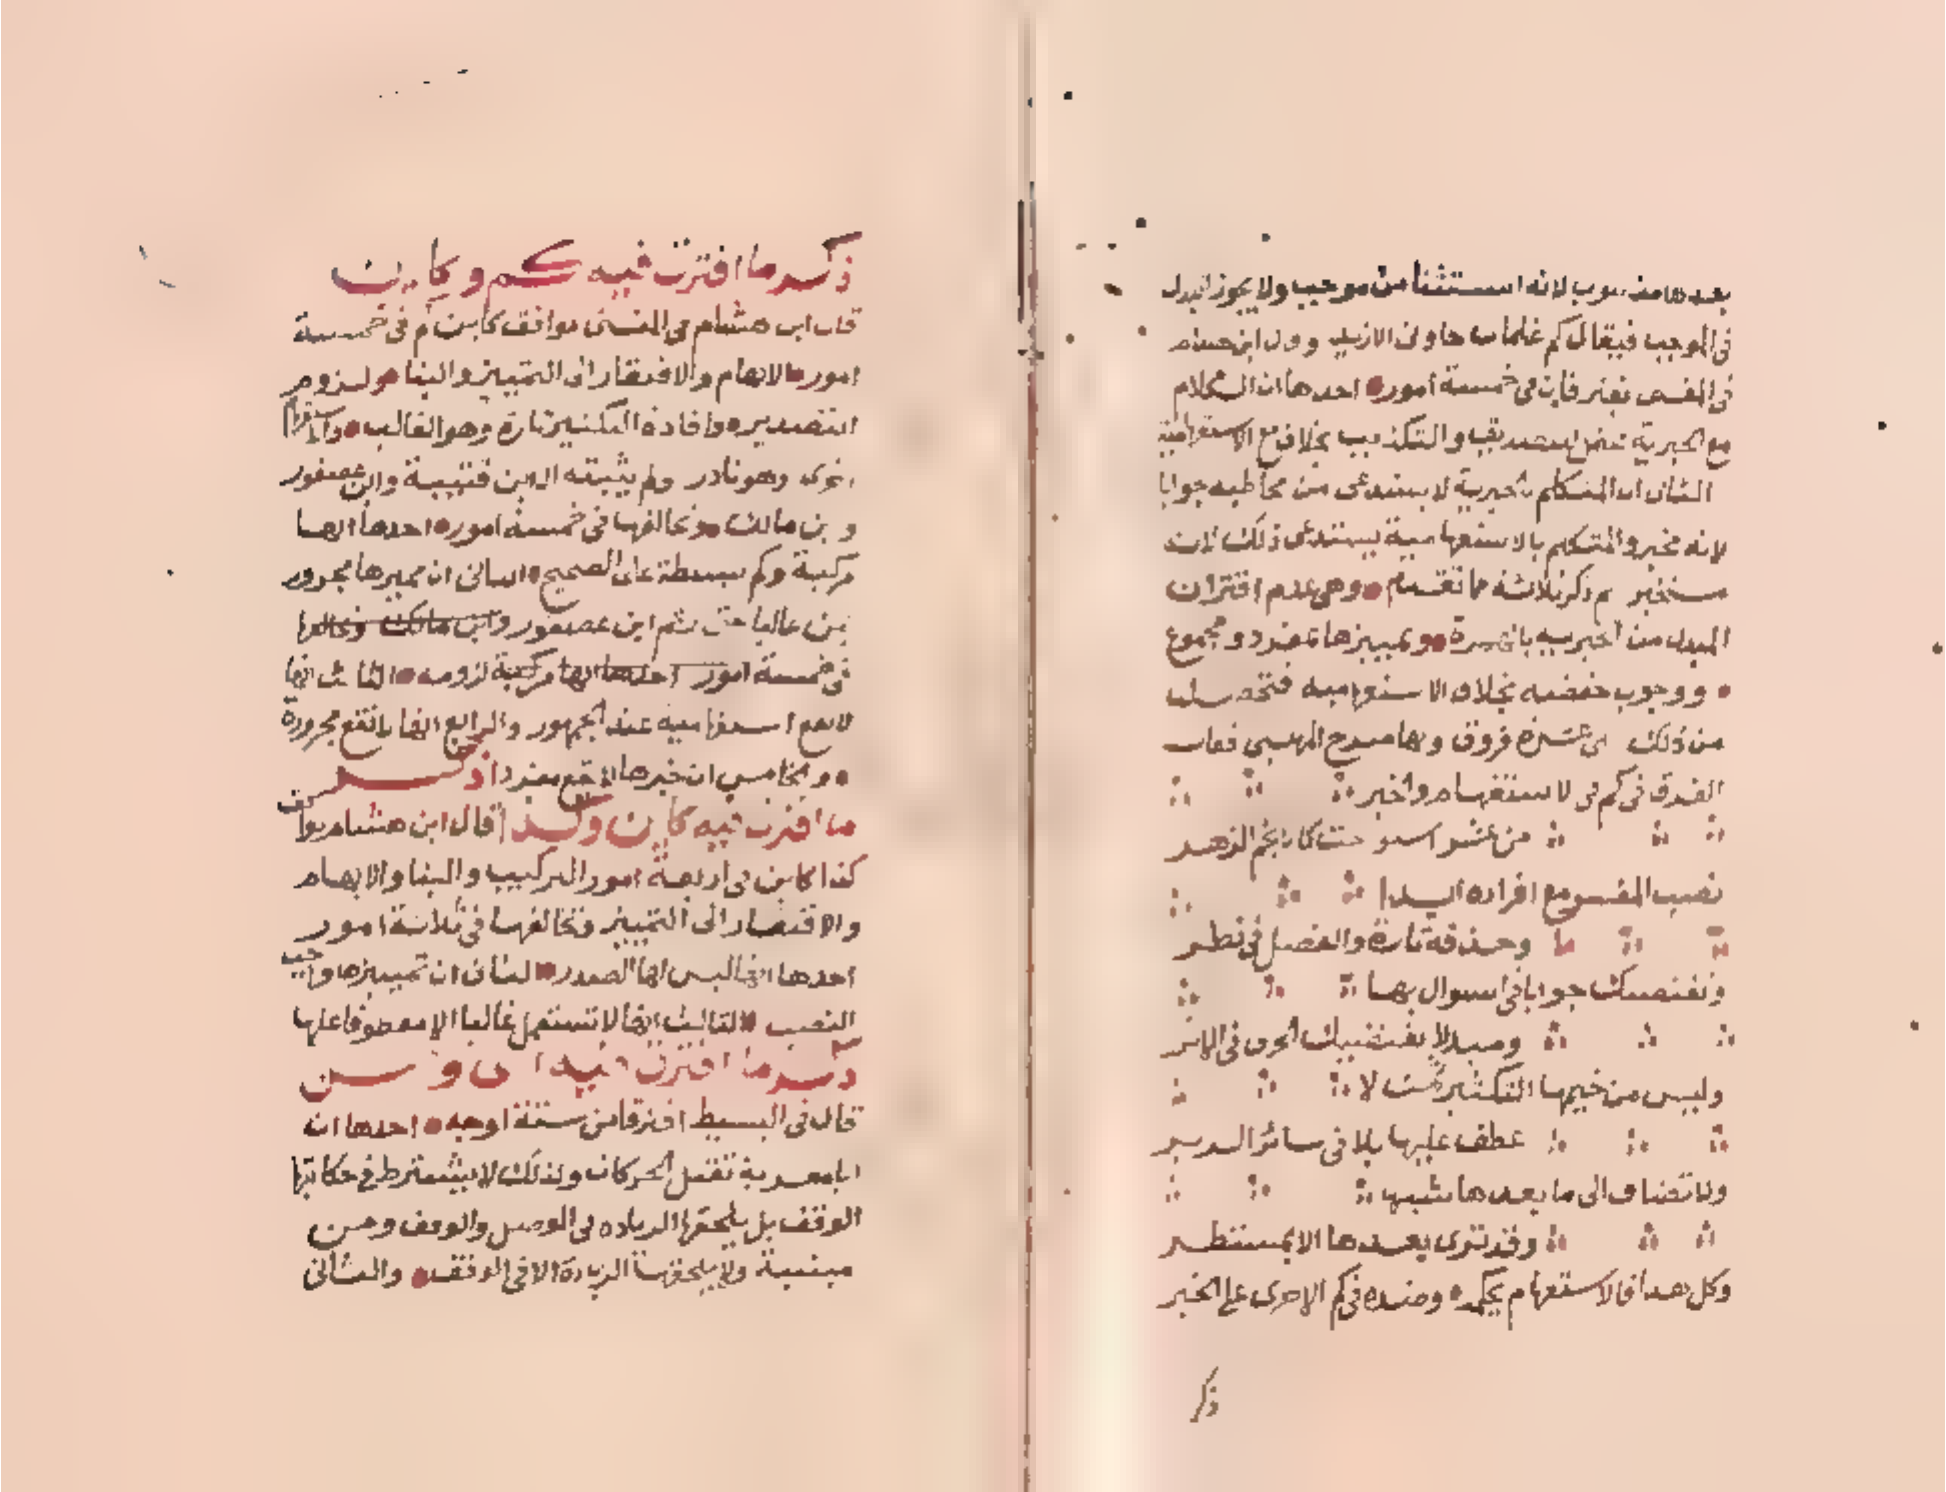 بعدها منصوب لانه استثنا من موجب ولا يجوز البدل
فى الموجب فيقال كم غلمانا جاونى الا زيد وقال ابن هشام
فى المغنى يفترقان فى خمسة امور احدها ان الكلام
مع الخبرية يحتمل التصديق والتكذيب بخلافه مع الاستفهامية
الثانى ان المتكلم بالخبرية لا يستدعى من مخاطبه جوابا
لانه مخبر والمتكلم بالاستفهامية يستدعى ذلك لانه
مستخبر ثم ذكر ثلاثة مما تقدم وهى عدم اقتران
المبدل من الخبرية بالهمزة وتمييزها بمفرد ومجموع
ووجوب خفضه بخلاف الاستفهامية فتحصلنا
من ذلك على عشرة فروق وبها صرح المهلبي فقال
الفرق فى كم فى الاستفهام والخبر
من عشر اسو حتت كالانجم الزهر
نصب المفسر مع افراده ابدا
وحذفه تارة والفصل فى نظر
وتقتضيك جوابا فى السوال بها
ومبدلا يقتضيك الحرف فى الاثر
وليس من خيمها التكثير ثمت لا
عطف عليها بلا فى سائر السير
ولا تضاف الى ما بعدها شبها
وقد ترى بعدها الا بمستطر
وكل هذا فالاستفهام يحكمه وضده فى كم الاخرى على الخبر
ذكر
ذكر ما افترق فيه كم وكاين
قال ابن هشام فى المغنى توافق كاين كم فى خمسة
امور الابهام والافتقار الى التمييز والبنا ولزوم
التصدير وافادة التكثير تارة وهو الغالب والاستفهام
اخرى وهو نادر ولم يثبته الا ابن قتيبة وابن عصفور
وبن مالك وتخالفها فى خمسة امور احدها انها
مركبة وكم بسيطة على الصحيح الثانى ان مميزها مجرور
بمن غالبا حتى زعم ابن عصفور وابن مالك وتخالفها
فى خمسة امور احدها انها مركبة لزومه الثالث انها
لا تقع استفهامية عند الجمهور والرابع انها لا تقع مجرورة
والخامس ان خبرها لا يقع مفردا ذكر
ما افترق فيه كاين وكذا قال ابن هشام توافق
كذا كاين فى اربعة امور التركيب والبنا والابهام
والافتقار الى التمييز وتخالفها فى ثلاثة امور
احدها انها ليس لها الصدر الثانى ان تمييزها واجب
النصب الثالث انها لا تستعمل غالبا الا معطوفا عليها
ذكر ما افترق فيه اى ومن
قال فى البسيط افترقا من ستة اوجه احدها ان
ايا معربة تقبل الحركات ولذلك لا يشترط فى حكايتها
الوقف بل يلحقها الزيادة فى الوصل والوقف ومن
مبنية ولا يلحقها الزيادة الا فى الوقف والثانى